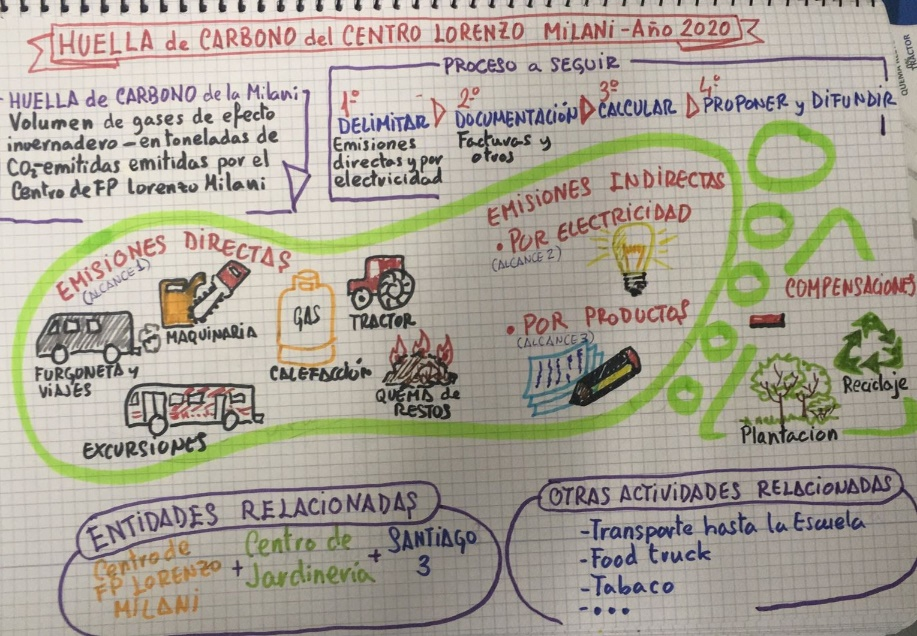 HUELLA de CARBONO del CENTRO LORENZO MiLANi - Año 2020
HUELLA de CARBONO de la Milani
Volumen de gases de efecto
invernadero - en toneladas de
CO2 - emitidas emitidas por el
Centro de FP Lorenzo Milani
PROCESO a SEGUIR
1º
DELIMITAR
Emisiones
directas y por
electricidad
2º
DOCUMENTACIÓN
Facturas y
otros
3º
CALCULAR
4º
PROPONER y DIFUNDIR
TRACTOR
EMISIONES DIRECTAS
(ALCANCE 1)
MAQUINARIA
FURGONETA y
VIAJES
EXCURSIONES
GAS
CALEFACCIÓN
TRACTOR
QUEMA de
RESTOS
EMISIONES INDIRECTAS
• POR ELECTRICIDAD
(ALCANCE 2)
• POR PRODUCTOS
(ALCANCE 3)
COMPENSACIONES
Plantacion
Reciclaje
ENTIDADES RELACIONADAS
Centro de
FP LORENZO
MILANI
+
Centro de
Jardinería
+
SANTIAGO
3
OTRAS ACTIVIDADES RELACIONADAS
- Transporte hasta la Escuela
- Food truck
- Tabaco
- ...